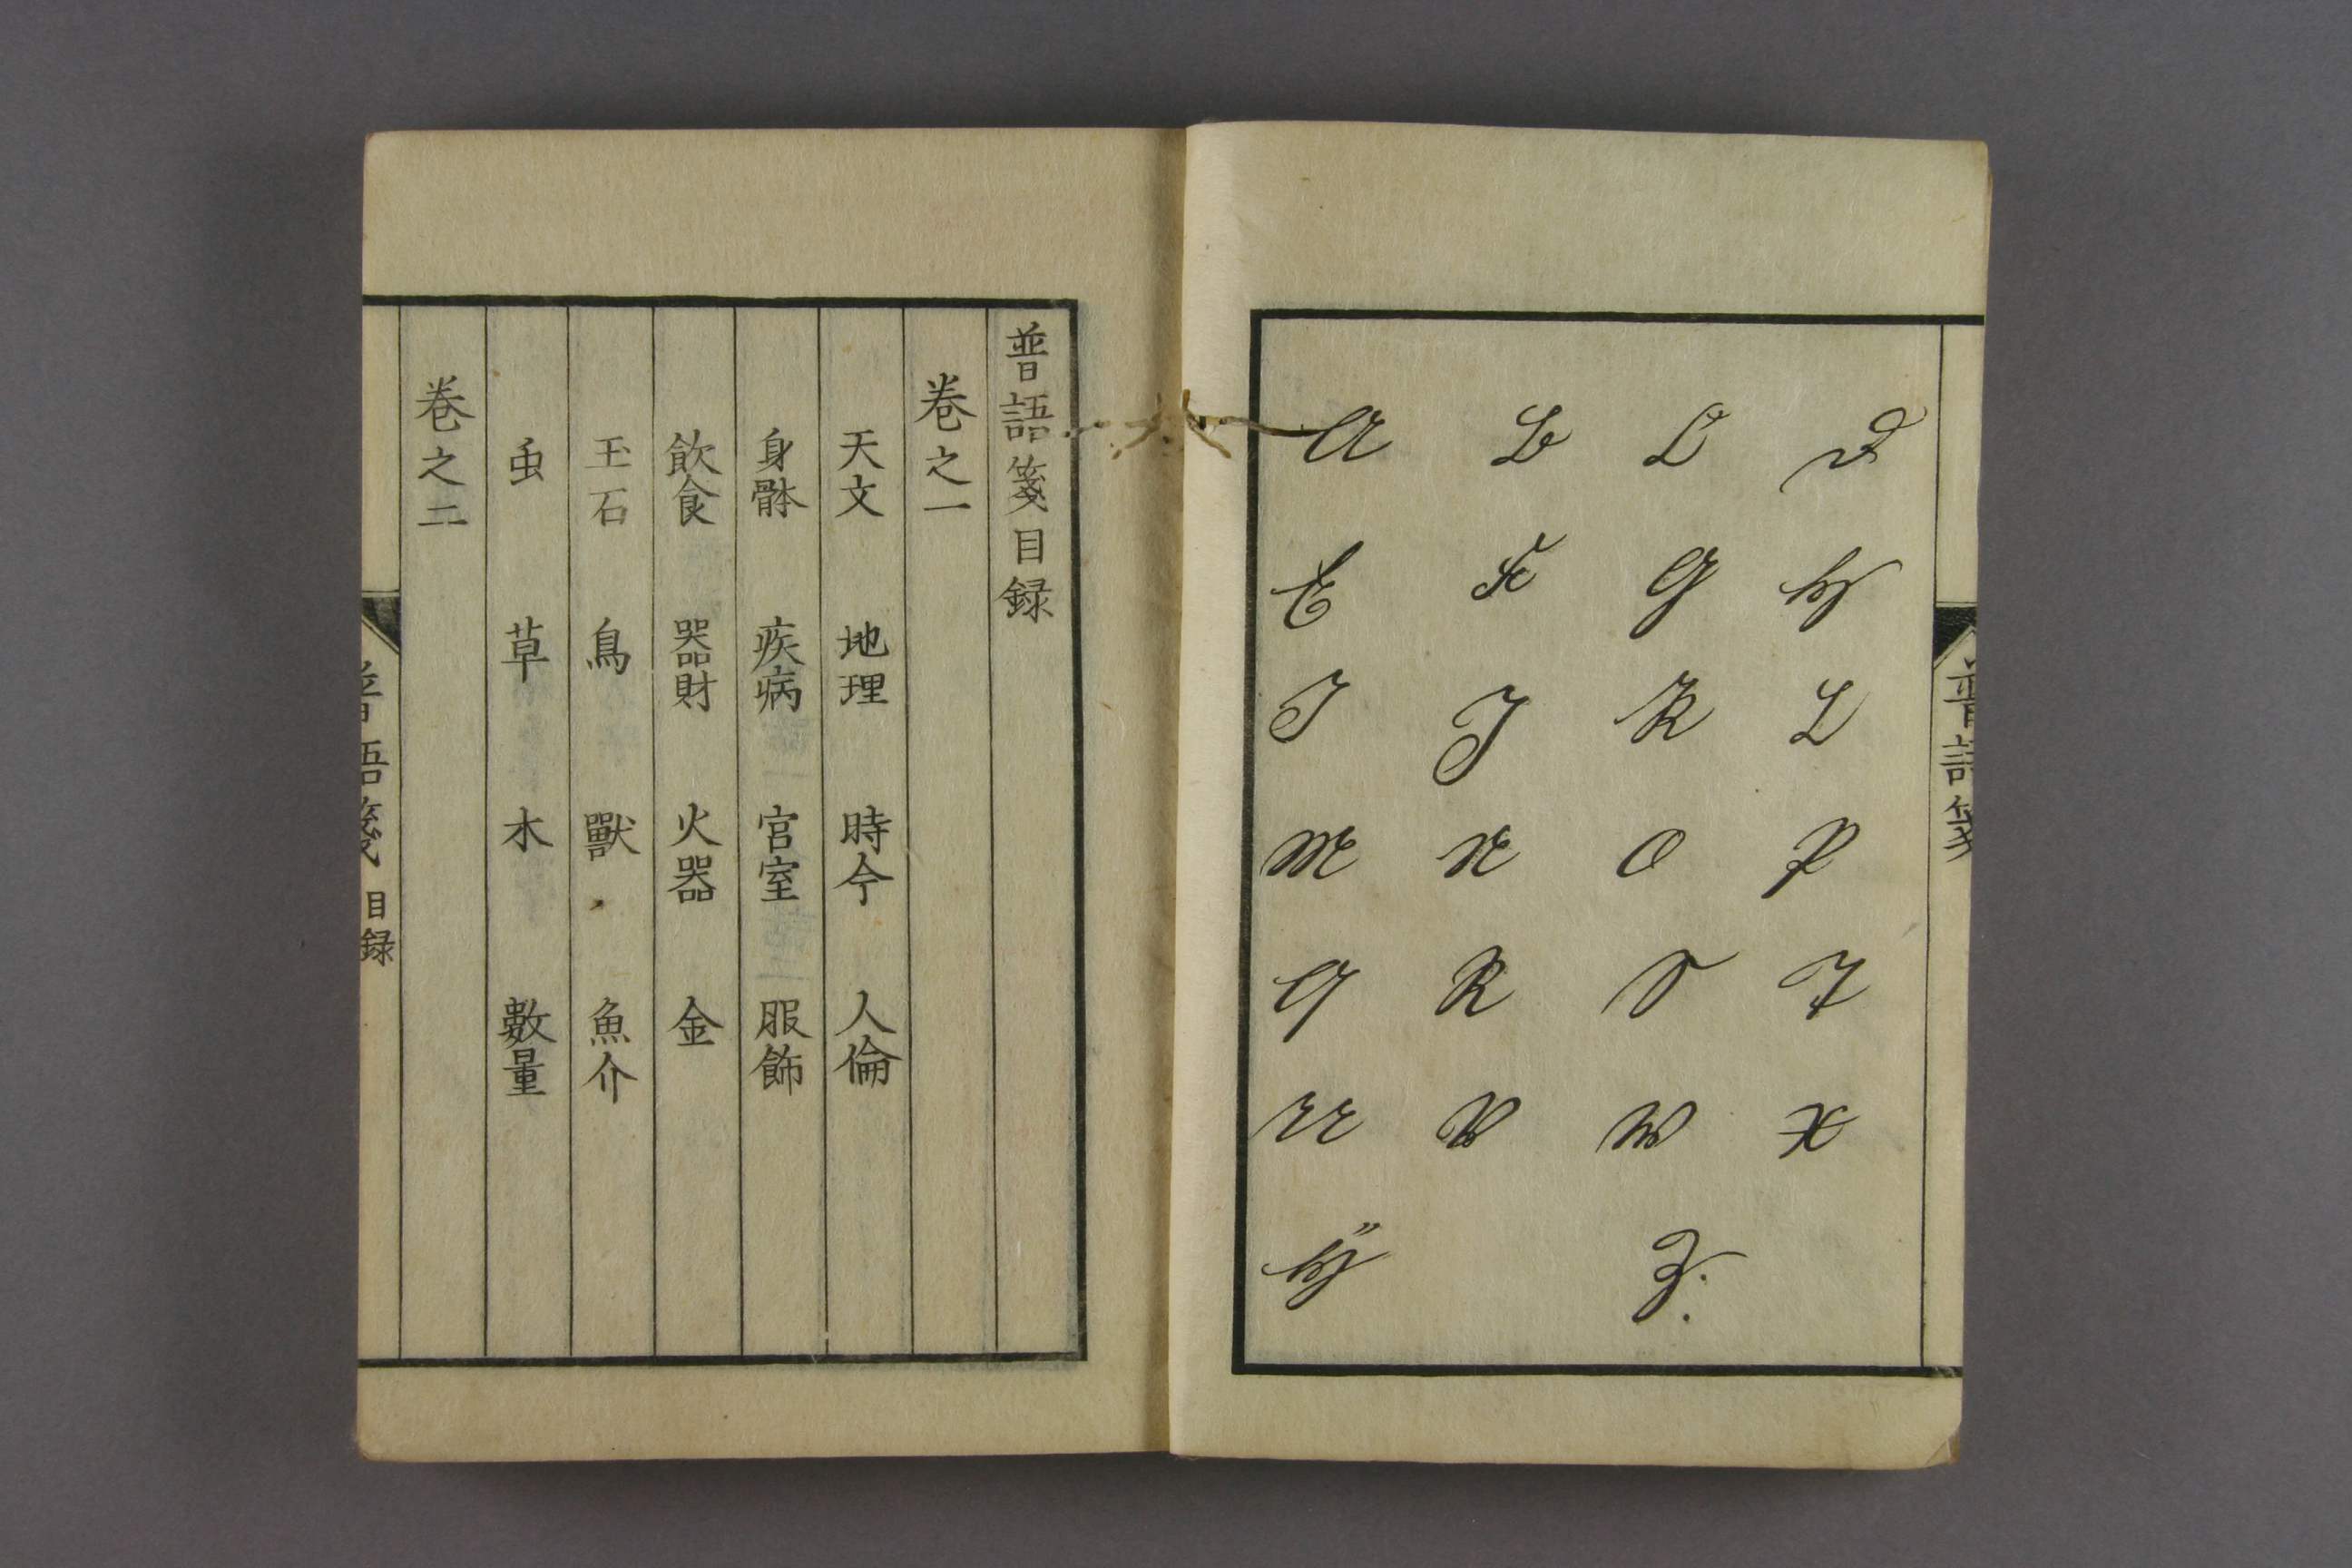 A B C D
E F G H
I J K L
M N O P
Q R S T
U V W X
Ÿ Z.
普語箋
普語箋目録
卷之一
天文 地理 時令 人倫
身體 疾病 宮室 服飾
飲食 器財 火器 金
玉石 鳥 獸 魚介
虫 草 木 數量
卷之二
普語箋 目録